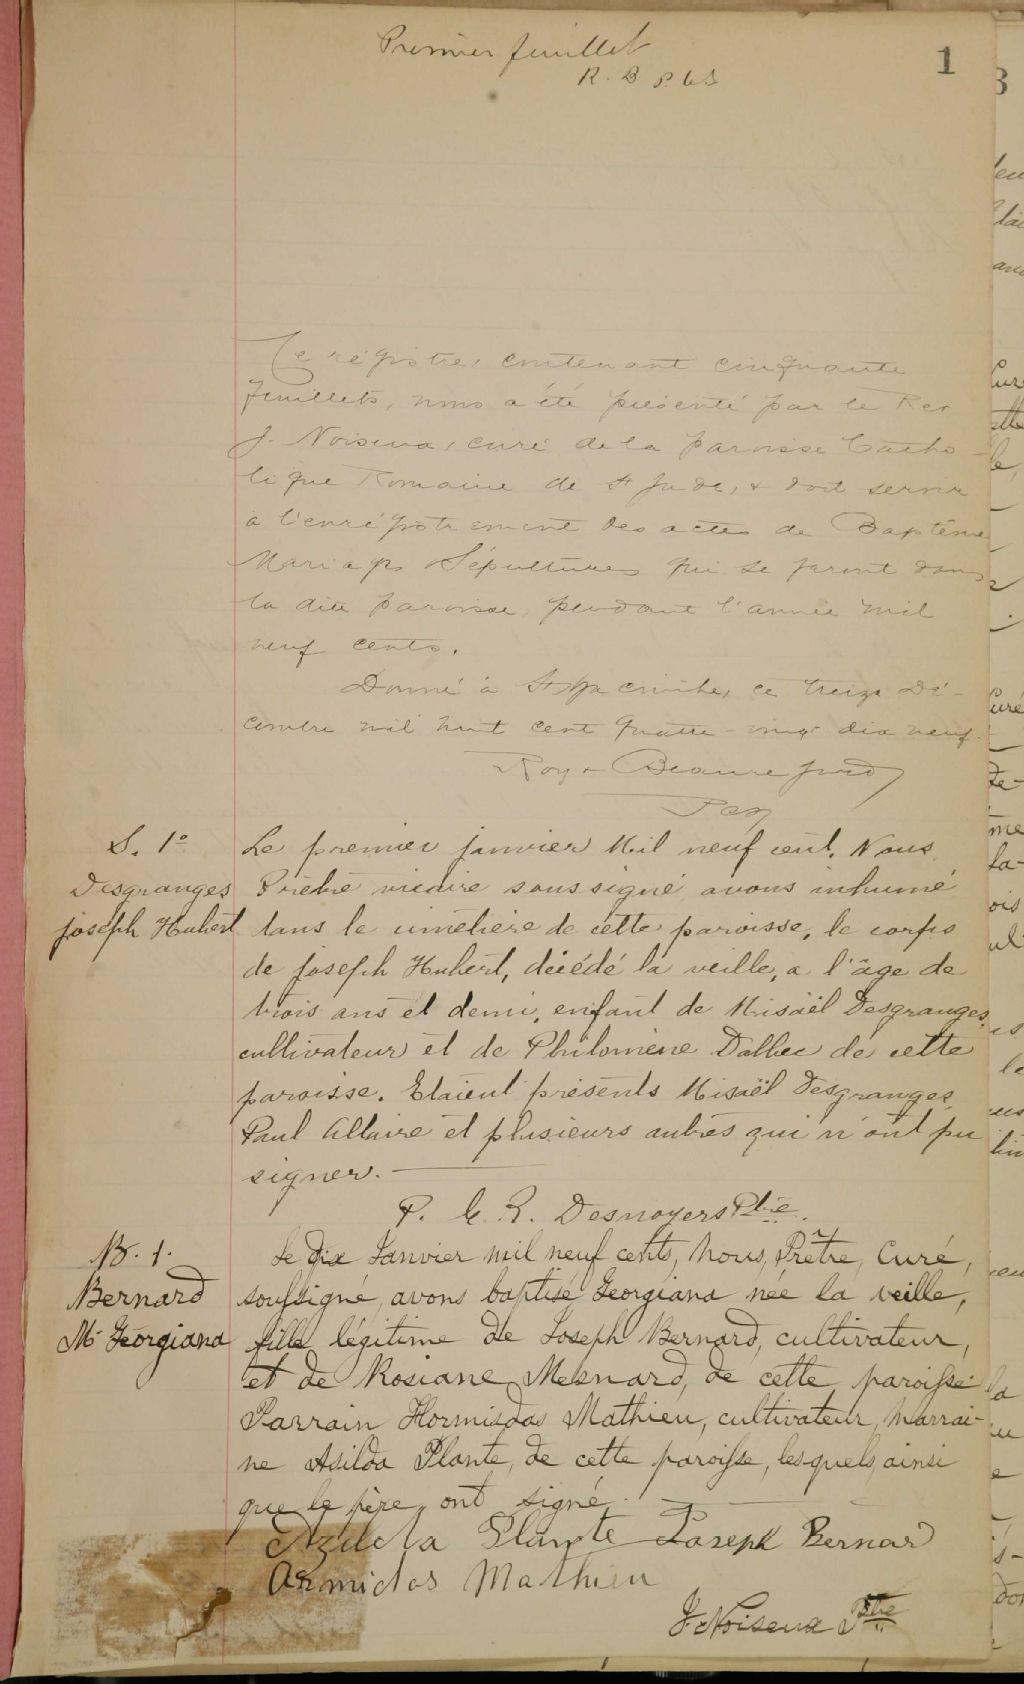 Premier feuillet
R. B P. C S
1
Ce régistre, contenant cinquante
feuillets, nous a été présenté par le Rev
J. Noiseux, curé de la paroisse Catho-
lique Romaine de St Jude, & doit servir
à l'enrégistrement des actes de Baptême
Mariages Sépultures qui se feront dans
la dite paroisse, pendant l'année mil
neuf cents.
Donné à St Hyacinthe, ce treize Dé-
cembre mil huit cent quatre-vingt dix neuf.
Roy & Beauregard
S. 1º
Desgranges
joseph Hubert
Le premier janvier Mil neuf cent. Nous
Prêtre vicaire soussigné avons inhumé
dans le cimetière de cette paroisse, le corps
de joseph Hubert, décédé la veille, a l'âge de
trois ans et demi, enfant de Misaël Desgranges,
cultivateur et de Philomène Dalbec de cette
paroisse. Etaient présents Misaël Desgranges,
Paul Allaire et plusieurs autres qui n'ont pu
signer.
P. E. R. Desnoyers Ptre.
B. 1.
Bernard
Me Georgiana
Le dix Janvier mil neuf cents, Nous, Prêtre, Curé,
soussigné, avons baptisé Georgiana née la veille,
fille légitime de Joseph Bernard, cultivateur,
et de Rosiane Mesnard, de cette paroisse
Parrain Hormisdas Mathieu, cultivateur, Marrai-
ne Asilda Plante, de cette paroisse, lesquels, ainsi
que le père, ont signé.
Azilda Plante Joseph Bernard
Armidas Mathieu
J. Noiseux Ptre